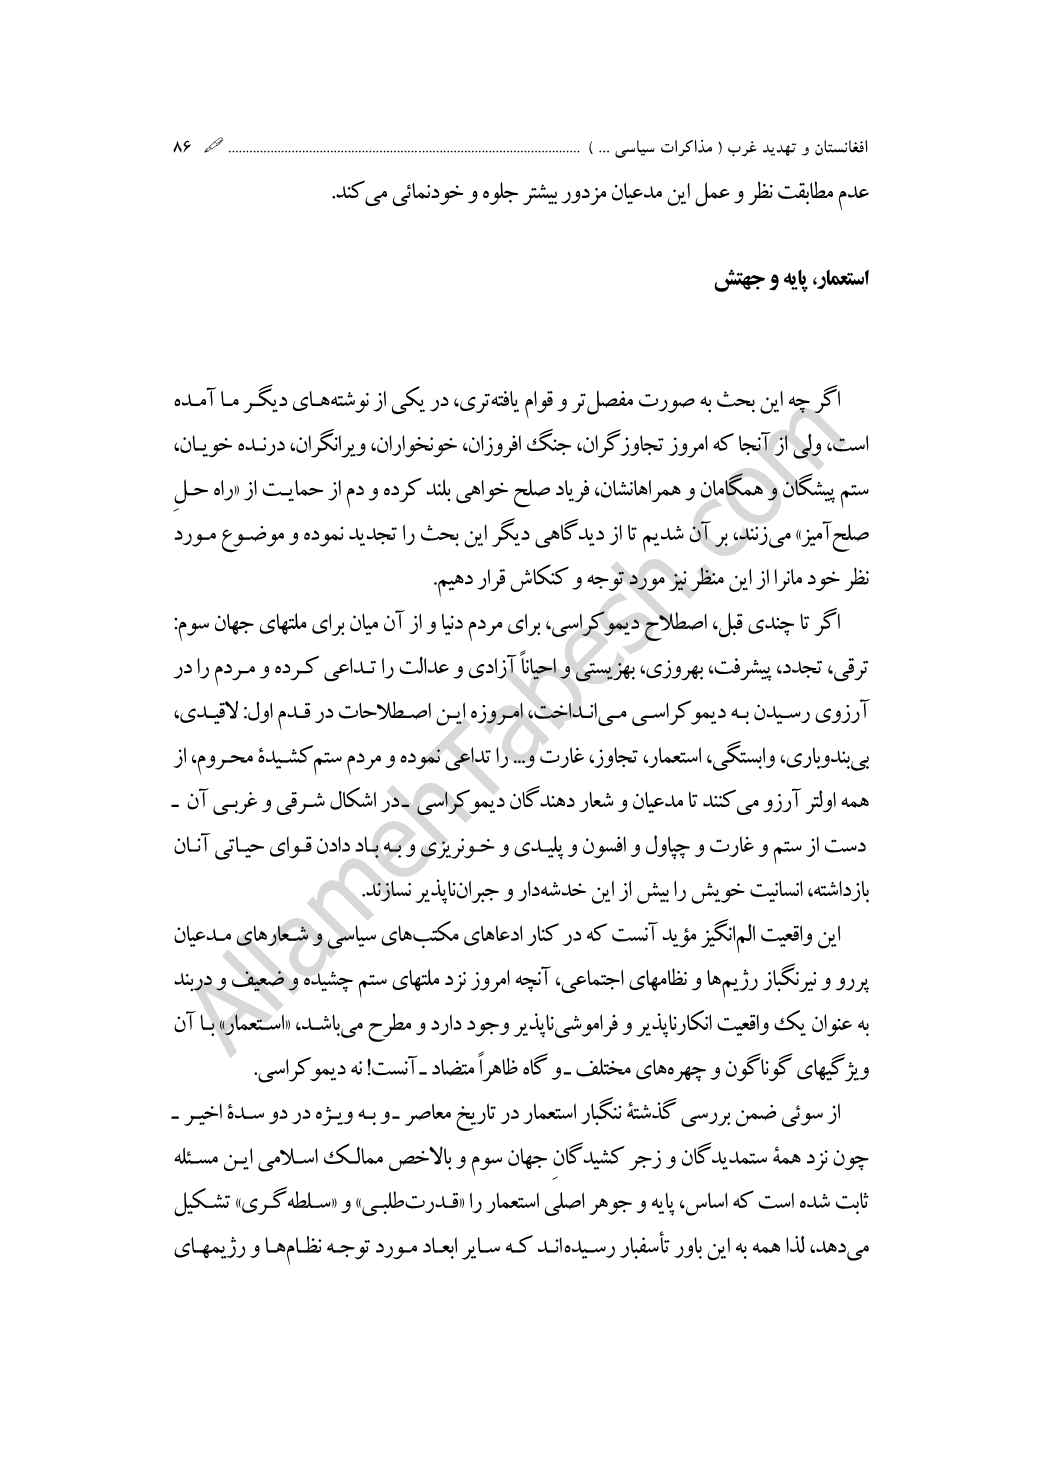 افغانستان و تهدید غرب ( مذاکرات سیاسی ... ) ..................................................................................................... ۸۶
عدم مطابقت نظر و عمل این مدعیان مزدور بیشتر جلوه و خودنمائی می‌کند.
استعمار، پایه و جهتش
اگر چه این بحث به صورت مفصل‌تر و قوام یافته‌تری، در یکی از نوشته‌هـای دیگـر مـا آمـده
است، ولی از آنجا که امروز تجاوزگران، جنگ افروزان، خونخواران، ویرانگران، درنـده خویـان،
ستم پیشگان و همگامان و همراهانشان، فریاد صلح خواهی بلند کرده و دم از حمایـت از «راه حـلِ
صلح‌آمیز» می‌زنند، بر آن شدیم تا از دیدگاهی دیگر این بحث را تجدید نموده و موضـوع مـورد
نظر خود مانرا از این منظر نیز مورد توجه و کنکاش قرار دهیم.
اگر تا چندی قبل، اصطلاح دیموکراسی، برای مردم دنیا و از آن میان برای ملتهای جهان سوم:
ترقی، تجدد، پیشرفت، بهروزی، بهزیستی و احیاناً آزادی و عدالت را تـداعی کـرده و مـردم را در
آرزوی رسـیدن بـه دیموکراسـی مـی‌انـداخت، امـروزه ایـن اصـطلاحات در قـدم اول: لاقیـدی،
بی‌بندوباری، وابستگی، استعمار، تجاوز، غارت و... را تداعی نموده و مردم ستم‌کشـیدۀ محـروم، از
همه اولتر آرزو می‌کنند تا مدعیان و شعار دهندگان دیموکراسی ـ در اشکال شـرقی و غربـی آن ـ
دست از ستم و غارت و چپاول و افسون و پلیـدی و خـونریزی و بـه بـاد دادن قـوای حیـاتی آنـان
بازداشته، انسانیت خویش را بیش از این خدشه‌دار و جبران‌ناپذیر نسازند.
این واقعیت الم‌انگیز مؤید آنست که در کنار ادعاهای مکتب‌های سیاسی و شـعارهای مـدعیان
پررو و نیرنگباز رژیم‌ها و نظامهای اجتماعی، آنچه امروز نزد ملتهای ستم چشیده و ضعیف و دربند
به عنوان یک واقعیت انکارناپذیر و فراموشی‌ناپذیر وجود دارد و مطرح می‌باشـد، «اسـتعمار» بـا آن
ویژگیهای گوناگون و چهره‌های مختلف ـ و گاه ظاهراً متضاد ـ آنست! نه دیموکراسی.
از سوئی ضمن بررسی گذشتۀ ننگبار استعمار در تاریخ معاصر ـ و بـه ویـژه در دو سـدۀ اخیـر ـ
چون نزد همۀ ستمدیدگان و زجر کشیدگانِ جهان سوم و بالاخص ممالـک اسـلامی ایـن مسـئله
ثابت شده است که اساس، پایه و جوهر اصلی استعمار را «قـدرت‌طلبـی» و «سـلطه‌گـری» تشـکیل
می‌دهد، لذا همه به این باور تأسفبار رسـیده‌انـد کـه سـایر ابعـاد مـورد توجـه نظـام‌هـا و رژیمهـای
AllamehTabesh.com